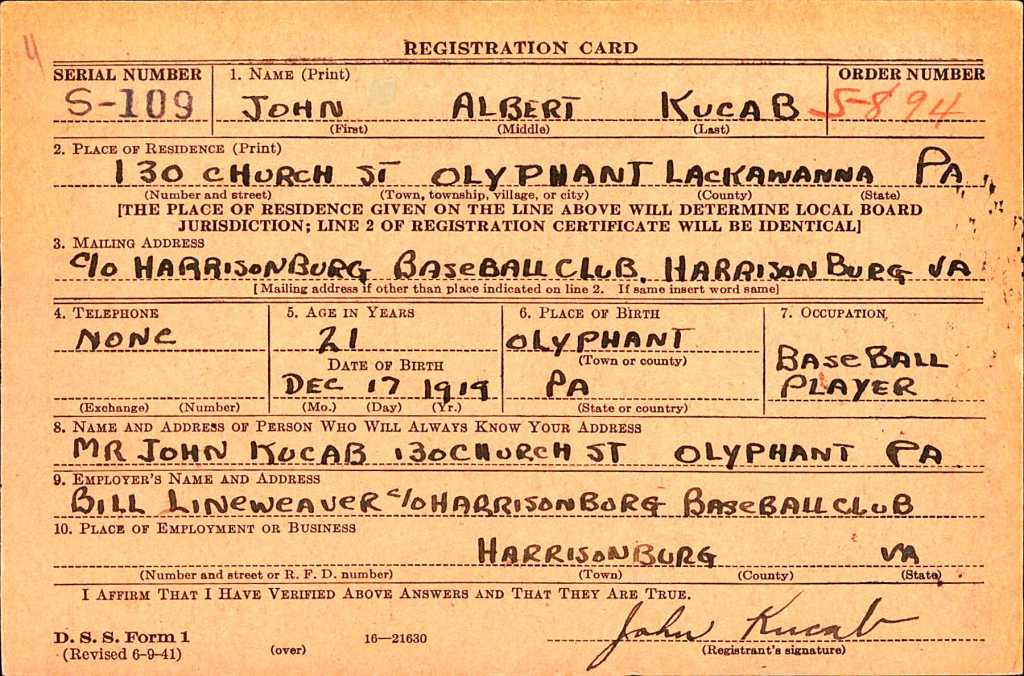 4
REGISTRATION CARD
SERIAL NUMBER 1. NAME (Print) ORDER NUMBER
S-109 JOHN ALBERT KUCAB S-894
(First) (Middle) (Last)
2. PLACE OF RESIDENCE (Print)
130 CHURCH ST OLYPHANT LACKAWANNA PA
(Number and street) (Town, township, village, or city) (County) (State)
[THE PLACE OF RESIDENCE GIVEN ON THE LINE ABOVE WILL DETERMINE LOCAL BOARD
JURISDICTION; LINE 2 OF REGISTRATION CERTIFICATE WILL BE IDENTICAL]
3. MAILING ADDRESS
c/o HARRISONBURG BASEBALL CLUB, HARRISONBURG VA
[Mailing address if other than place indicated on line 2. If same insert word same]
4. TELEPHONE 5. AGE IN YEARS 6. PLACE OF BIRTH 7. OCCUPATION
NONE 21 OLYPHANT
(Town or county) BASEBALL
DATE OF BIRTH
DEC 17 1919 PA PLAYER
(Exchange) (Number) (Mo.) (Day) (Yr.) (State or country)
8. NAME AND ADDRESS OF PERSON WHO WILL ALWAYS KNOW YOUR ADDRESS
MR JOHN KUCAB 130 CHURCH ST OLYPHANT PA
9. EMPLOYER'S NAME AND ADDRESS
BILL LINEWEAVER c/o HARRISONBORG BASEBALL CLUB
10. PLACE OF EMPLOYMENT OR BUSINESS
HARRISONBURG VA
(Number and street or R. F. D. number) (Town) (County) (State)
I AFFIRM THAT I HAVE VERIFIED ABOVE ANSWERS AND THAT THEY ARE TRUE.
John Kucab
D. S. S. Form 1 16—21630
(Revised 6-9-41) (over) (Registrant's signature)